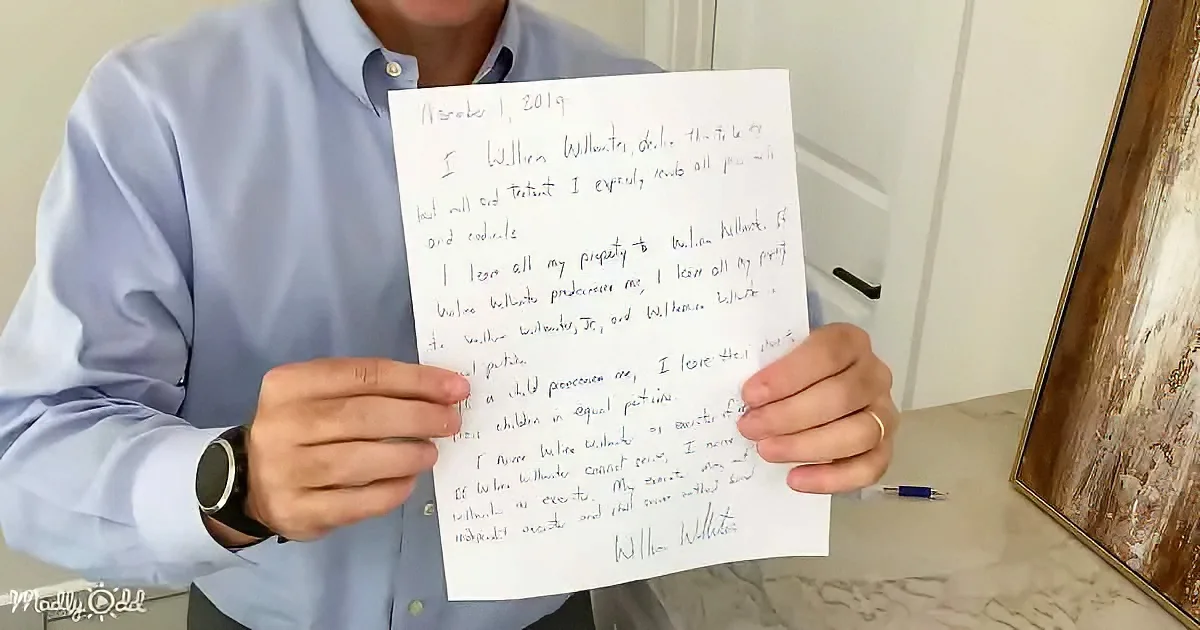 November 1, 2019
I William Willwriter, declare this to be my
last will and testament I expressly revoke all prior wills
and codicils
I leave all my property to Wilma Willwriter. If
Wilma Willwriter predeceases me, I leave all my property
to William Willwriter, Jr., and Wilhelmina Willwriter in
equal portions.
a child predeceases me, I leave their share to
their children in equal portions.
I name Wilma Willwriter as executor
If Wilma Willwriter cannot serve, I name
Willwriter as executor. My executor may act
independent executor and shall serve without bond
William Willwriter
Madly Odd